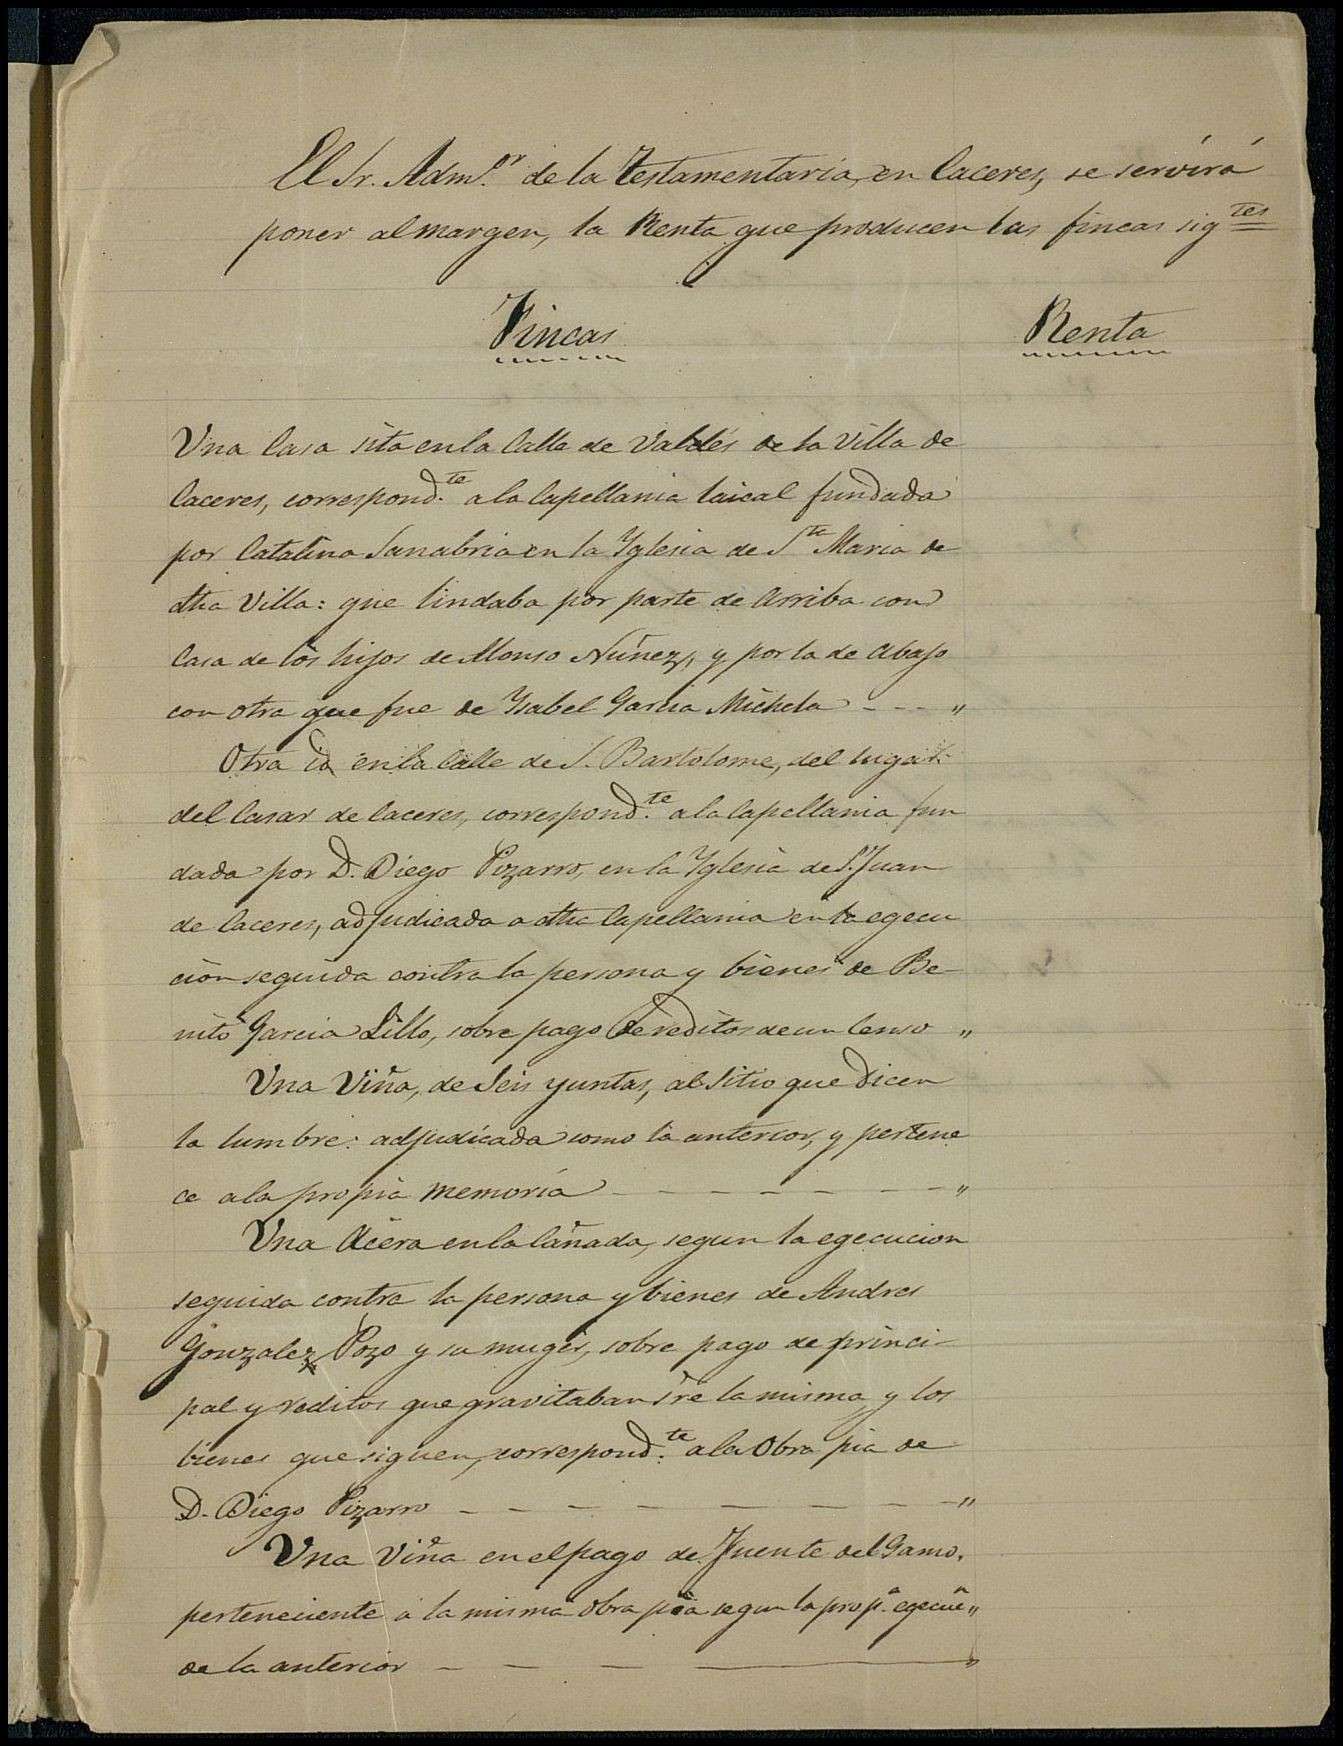 El Sr. Adm.or de la Testamentaría, en Caceres, se servirá
poner al margen, la Renta que producen las fincas sigtes
Fincas
Renta
Una Casa sita en la Calle de Valdés de la Villa de
Caceres, correspond.te a la Capellania laical fundada
por Catalina Sanabria en la Yglesia de Sta Maria de
dha Villa: que lindaba por parte de Arriba con
Casa de los hijos de Alonso Núñez, y por la de abajo
con otra que fue de Ysabel Garcia Michela - - - "
Otra id en la Calle de S. Bartolome, del lugar
del Casar de Caceres, correspond.te a la Capellania fun
dada por D. Diego Pizarro, en la Yglesia de S. Juan
de Caceres, adjudicada a dha Capellania en la egecu
cion seguida contra la persona y bienes de Be-
nito Garcia Lillo, sobre pago de reditos de un Censo "
Una Viña, de Seis yuntas, al Sitio que dicen
la Cumbre: adjudicada como la anterior, y pertene
ce a la propia memoria - - - - - - - "
Una Acera en la Cañada, segun la egecucion
seguida contra la persona y bienes de Andres
Gonzalez Pozo y su muger, sobre pago de princi-
pal y reditos que gravitaban sre la misma, y los
bienes que siguen, correspond.te a la Obra pia de
D. Diego Pizarro - - - - - - - - "
Una Viña en el pago de Fuente del Gamo,
perteneciente á la misma Obra pia segun la prop.a egecun "
de la anterior - - - - "